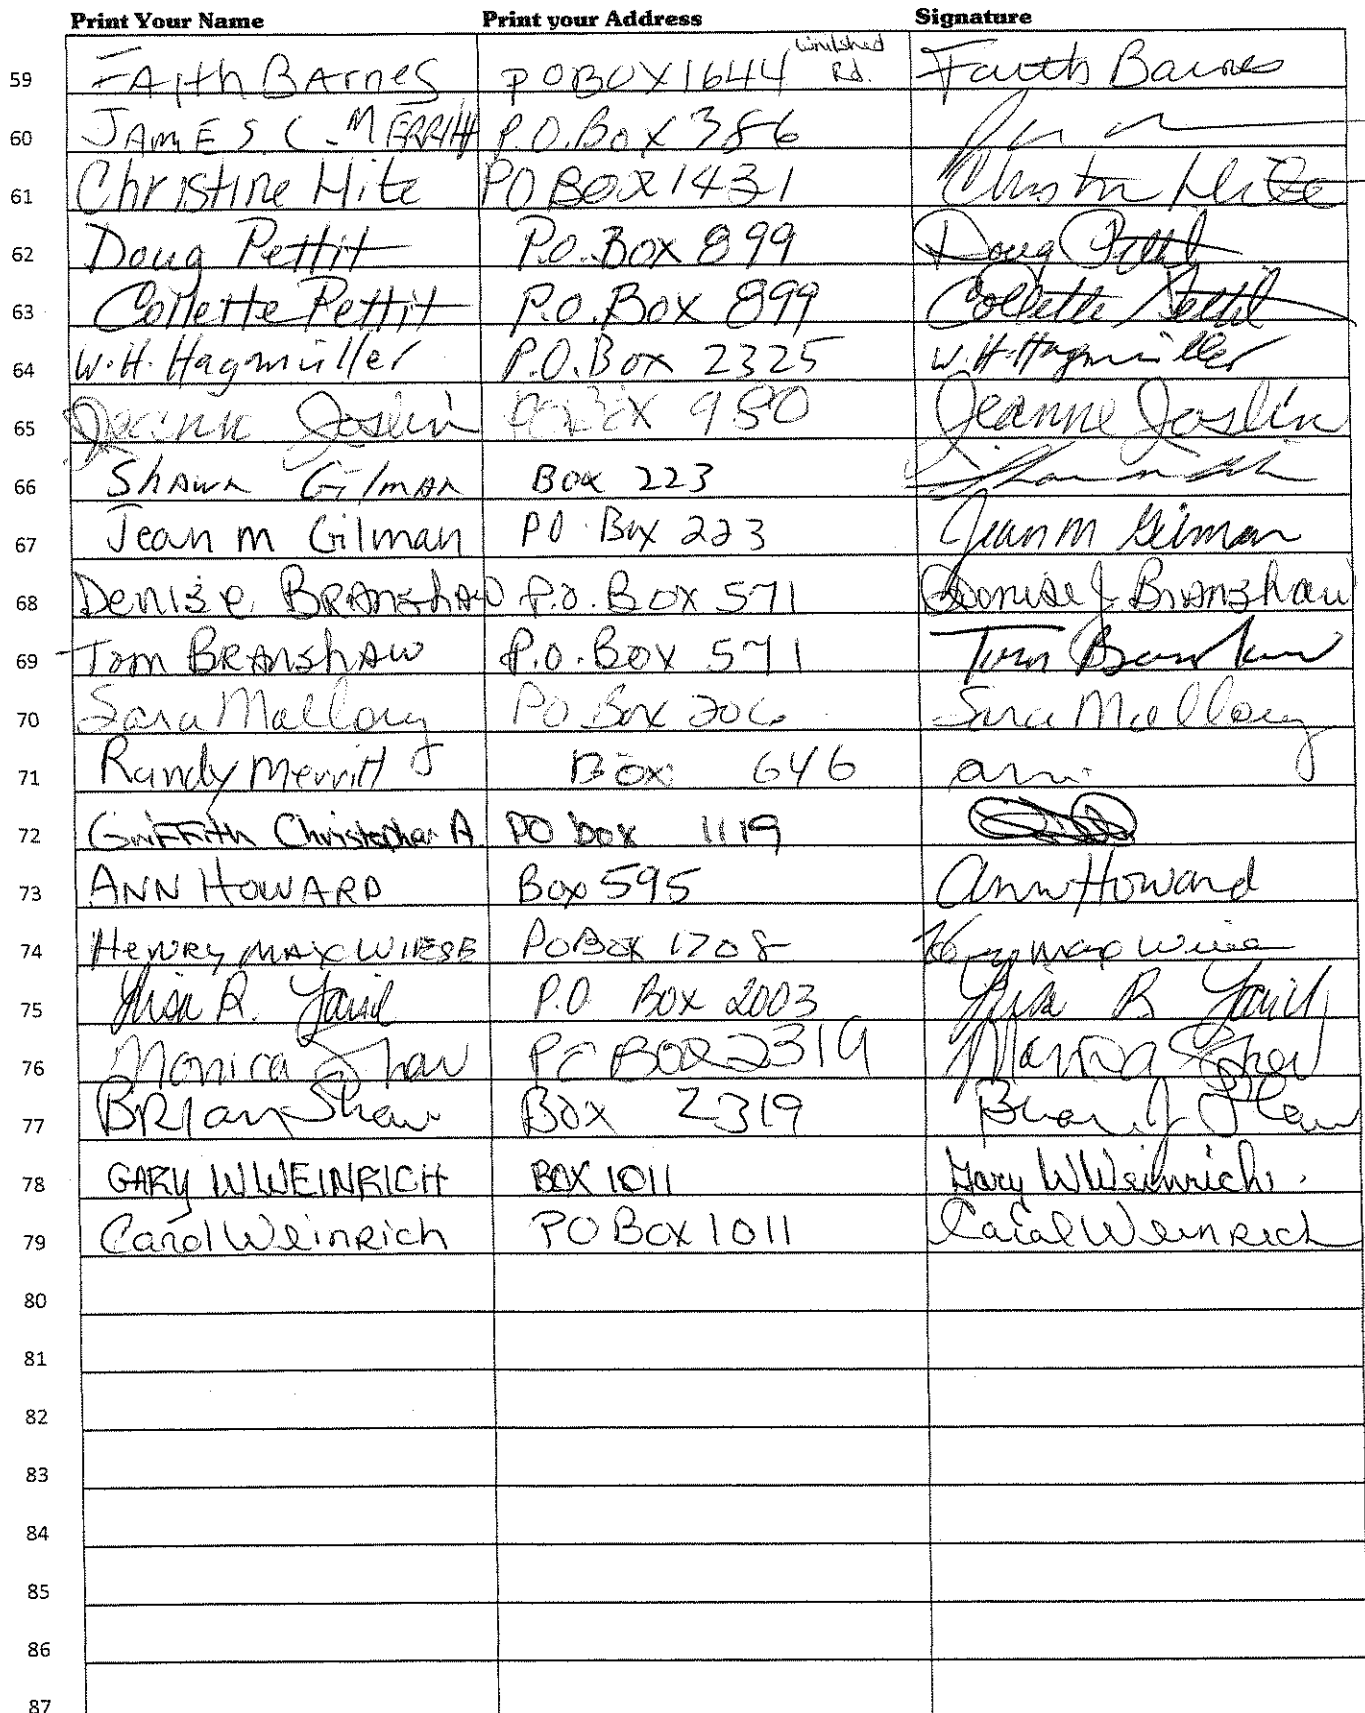 Print Your Name Print your Address Signature
59 FAith BArnes P O BOX 1644 Rd. Faith Barnes
60 JAMES C. MERRITT P.O. Box 386
61 Christine Hite PO BOX 1431 Hite
62 Doug Pettit P.O. Box 899 Doug Pettit
63 Collette Pettit P.O. Box 899 Collette Pettit
64 W.H. Hagmüller P.O. Box 2325 W.H. Hagmüller
65 Jeanne Joslin PO Box 980 Jeanne Joslin
66 Shawn Gilman Box 223
67 Jean m Gilman PO Box 223 Jean M Gilman
68 Denise BRAnshAW P.O. BOX 571 Denise J Branshaw
69 Tom BRAnshAW P.O. Box 571 Tom
70 Sara Mallory PO Box 206 Sara Mallory
71 Randy Merritt Box 646
72 GriFFith Christopher A. PO box 1119
73 ANN HOWARD Box 595 Ann Howard
74 HeNRy MAX WIESE PO BOX 1708 Max
75 R. P.O. Box 2003
76 Monica Shaw PO BOX 2319 Monica Shaw
77 BRIan Shaw Box 2319 Brian J Shaw
78 GARY W WEINRICH BOX 1011 Gary W Weinrich
79 Carol WeinRich PO Box 1011 Carol WeinRich
80
81
82
83
84
85
86
87